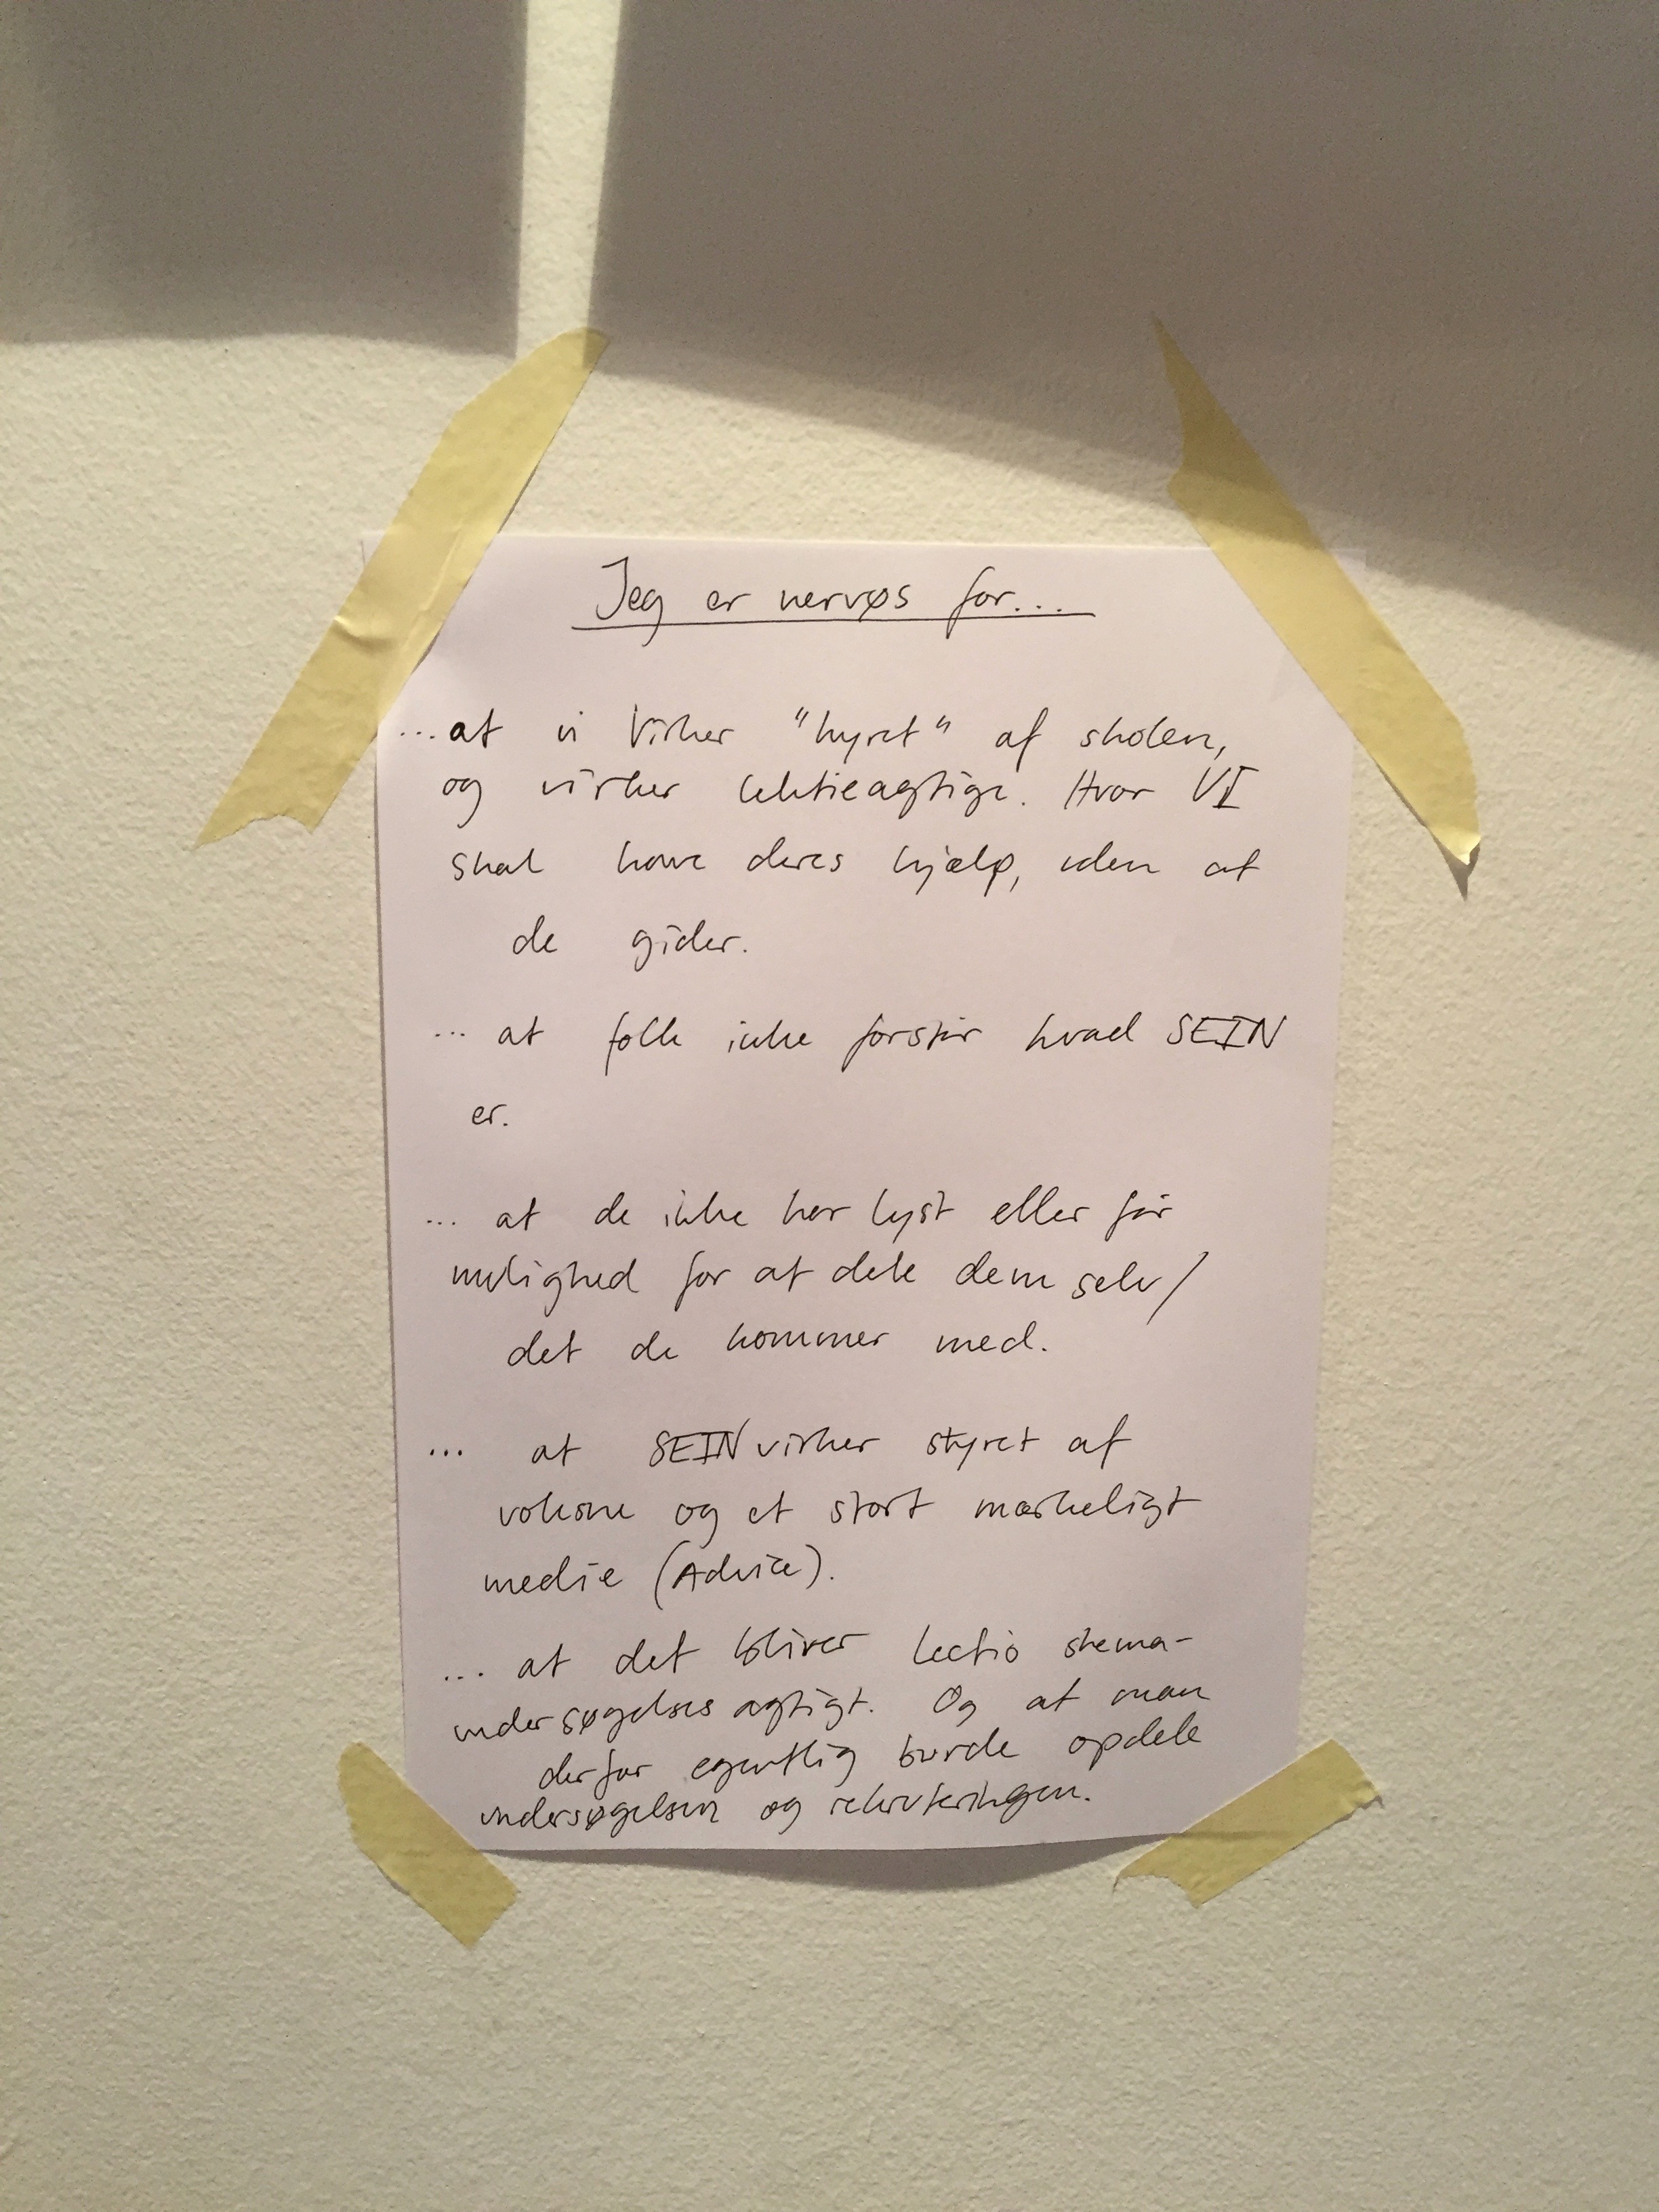 Jeg er nervøs for...
...at vi virker "hyret" af skolen,
og virker lektieagtige. Hvor VI
skal have deres hjælp, uden at
de gider.
... at folk ikke forstår hvad SEIN
er.
... at de ikke har lyst eller får
mulighed for at dele dem selv/
det de kommer med.
... at SEIN virker styret af
voksne og et stort mærkeligt
medie (Advice).
... at det bliver lectio skema-
undersøgelses agtigt. Og at man
derfor egentlig burde opdele
undersøgelsen og rekruteringen.